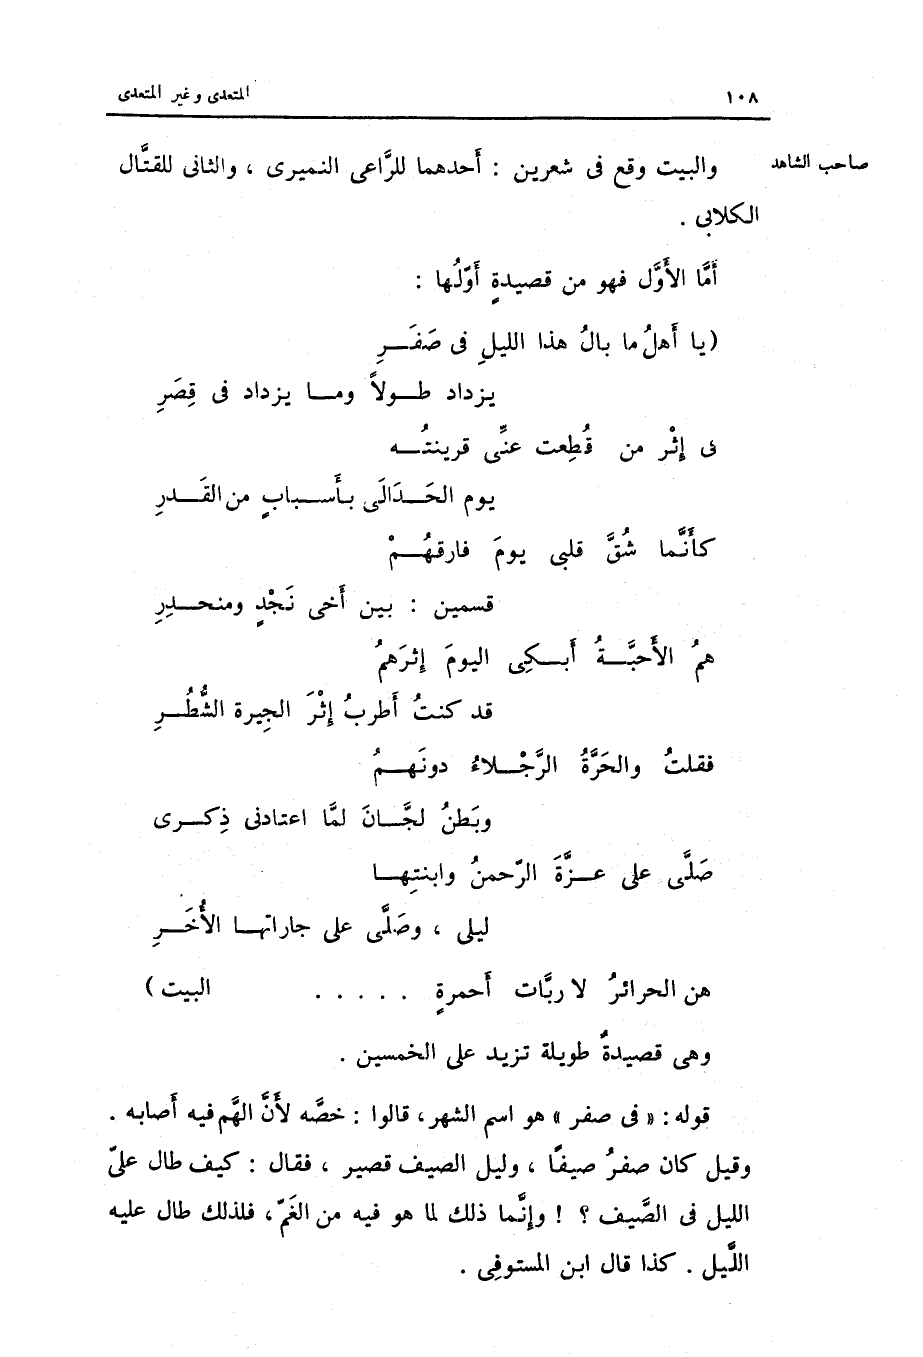 ١٠٨ المتعدى وغير المتعدى
صاحب الشاهد
والبيت وقع فى شعرين : أَحدهما للرَّاعى النميرى ، والثانى للقتَّال
الكلابى .
أَمَّا الأَوَّل فهو من قصيدةٍ أَوّلُها :
(يا أَهلُ ما بالُ هذا الليلِ فى صَفَـــرِ
يزداد طــولاً ومــا يزداد فى قِصَرِ
فى إِثْر من قُطِعت عنِّى قرينتُـــه
يوم الحَـــدَالَى بأَســـبابٍ من القَـــدرِ
كأَنَّما شُقَّ قلبى يومَ فارقهُـــمْ
قسمين : بين أَخى نَجْدٍ ومنحـــدِرِ
همُ الأَحبَّـــةُ أَبـــكِى اليومَ إِثرَهمُ
قد كنتُ أَطربُ إِثْرَ الجِيرة الشُّطُـــرِ
فقلتُ والحَرَّةُ الرَّجْـــلاءُ دونَهـــمُ
وبَطنُ لجَّـــانَ لمَّا اعتادنى ذِكـــرى
صَلَّى على عـــزَّةَ الرّحمنُ وابنتِهـــا
ليلى ، وصَلَّى على جاراتهـــا الأُخَـــرِ
هن الحرائرُ لا ربَّات أَحمرةٍ . . . . . البيت )
وهى قصيدةٌ طويلة تزيد على الخمسين .
قوله : « فى صفر » هو اسم الشهر ، قالوا : خصَّه لأَنَّ الهَّم فيه أَصابه .
وقيل كان صفرُ صيفًا ، وليل الصيف قصير ، فقال : كيف طال علىّ
الليل فى الصَّيف ؟ ! وإنَّما ذلك لما هو فيه من الغَمّ ، فلذلك طال عليه
اللَّيل . كذا قال ابن المستوفِى .